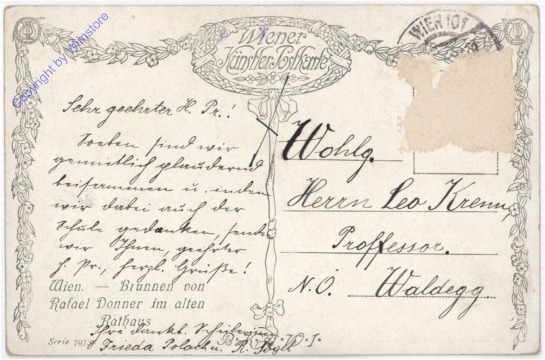 Wiener
Künstler-Postkarte
WIEN 101
Copyright by Wiinstore
Sehr geehrter H. Pr.!
Soeben sind wir
gemütlich plaudernd
beisammen u. indem
wir dabei auch der
Schule gedanken, senden
wir Ihnen, geehrter
H. Pr., herzl. Grüße!
Ihre dankb. Schülerinnen
Frieda Polack u.
Wohlg.
Herrn Leo Krenn
Proffessor.
N.Ö. Waldegg.
Wien. — Brunnen von
Rafael Donner im alten
Rathaus
Serie 793
B. K. W. I.